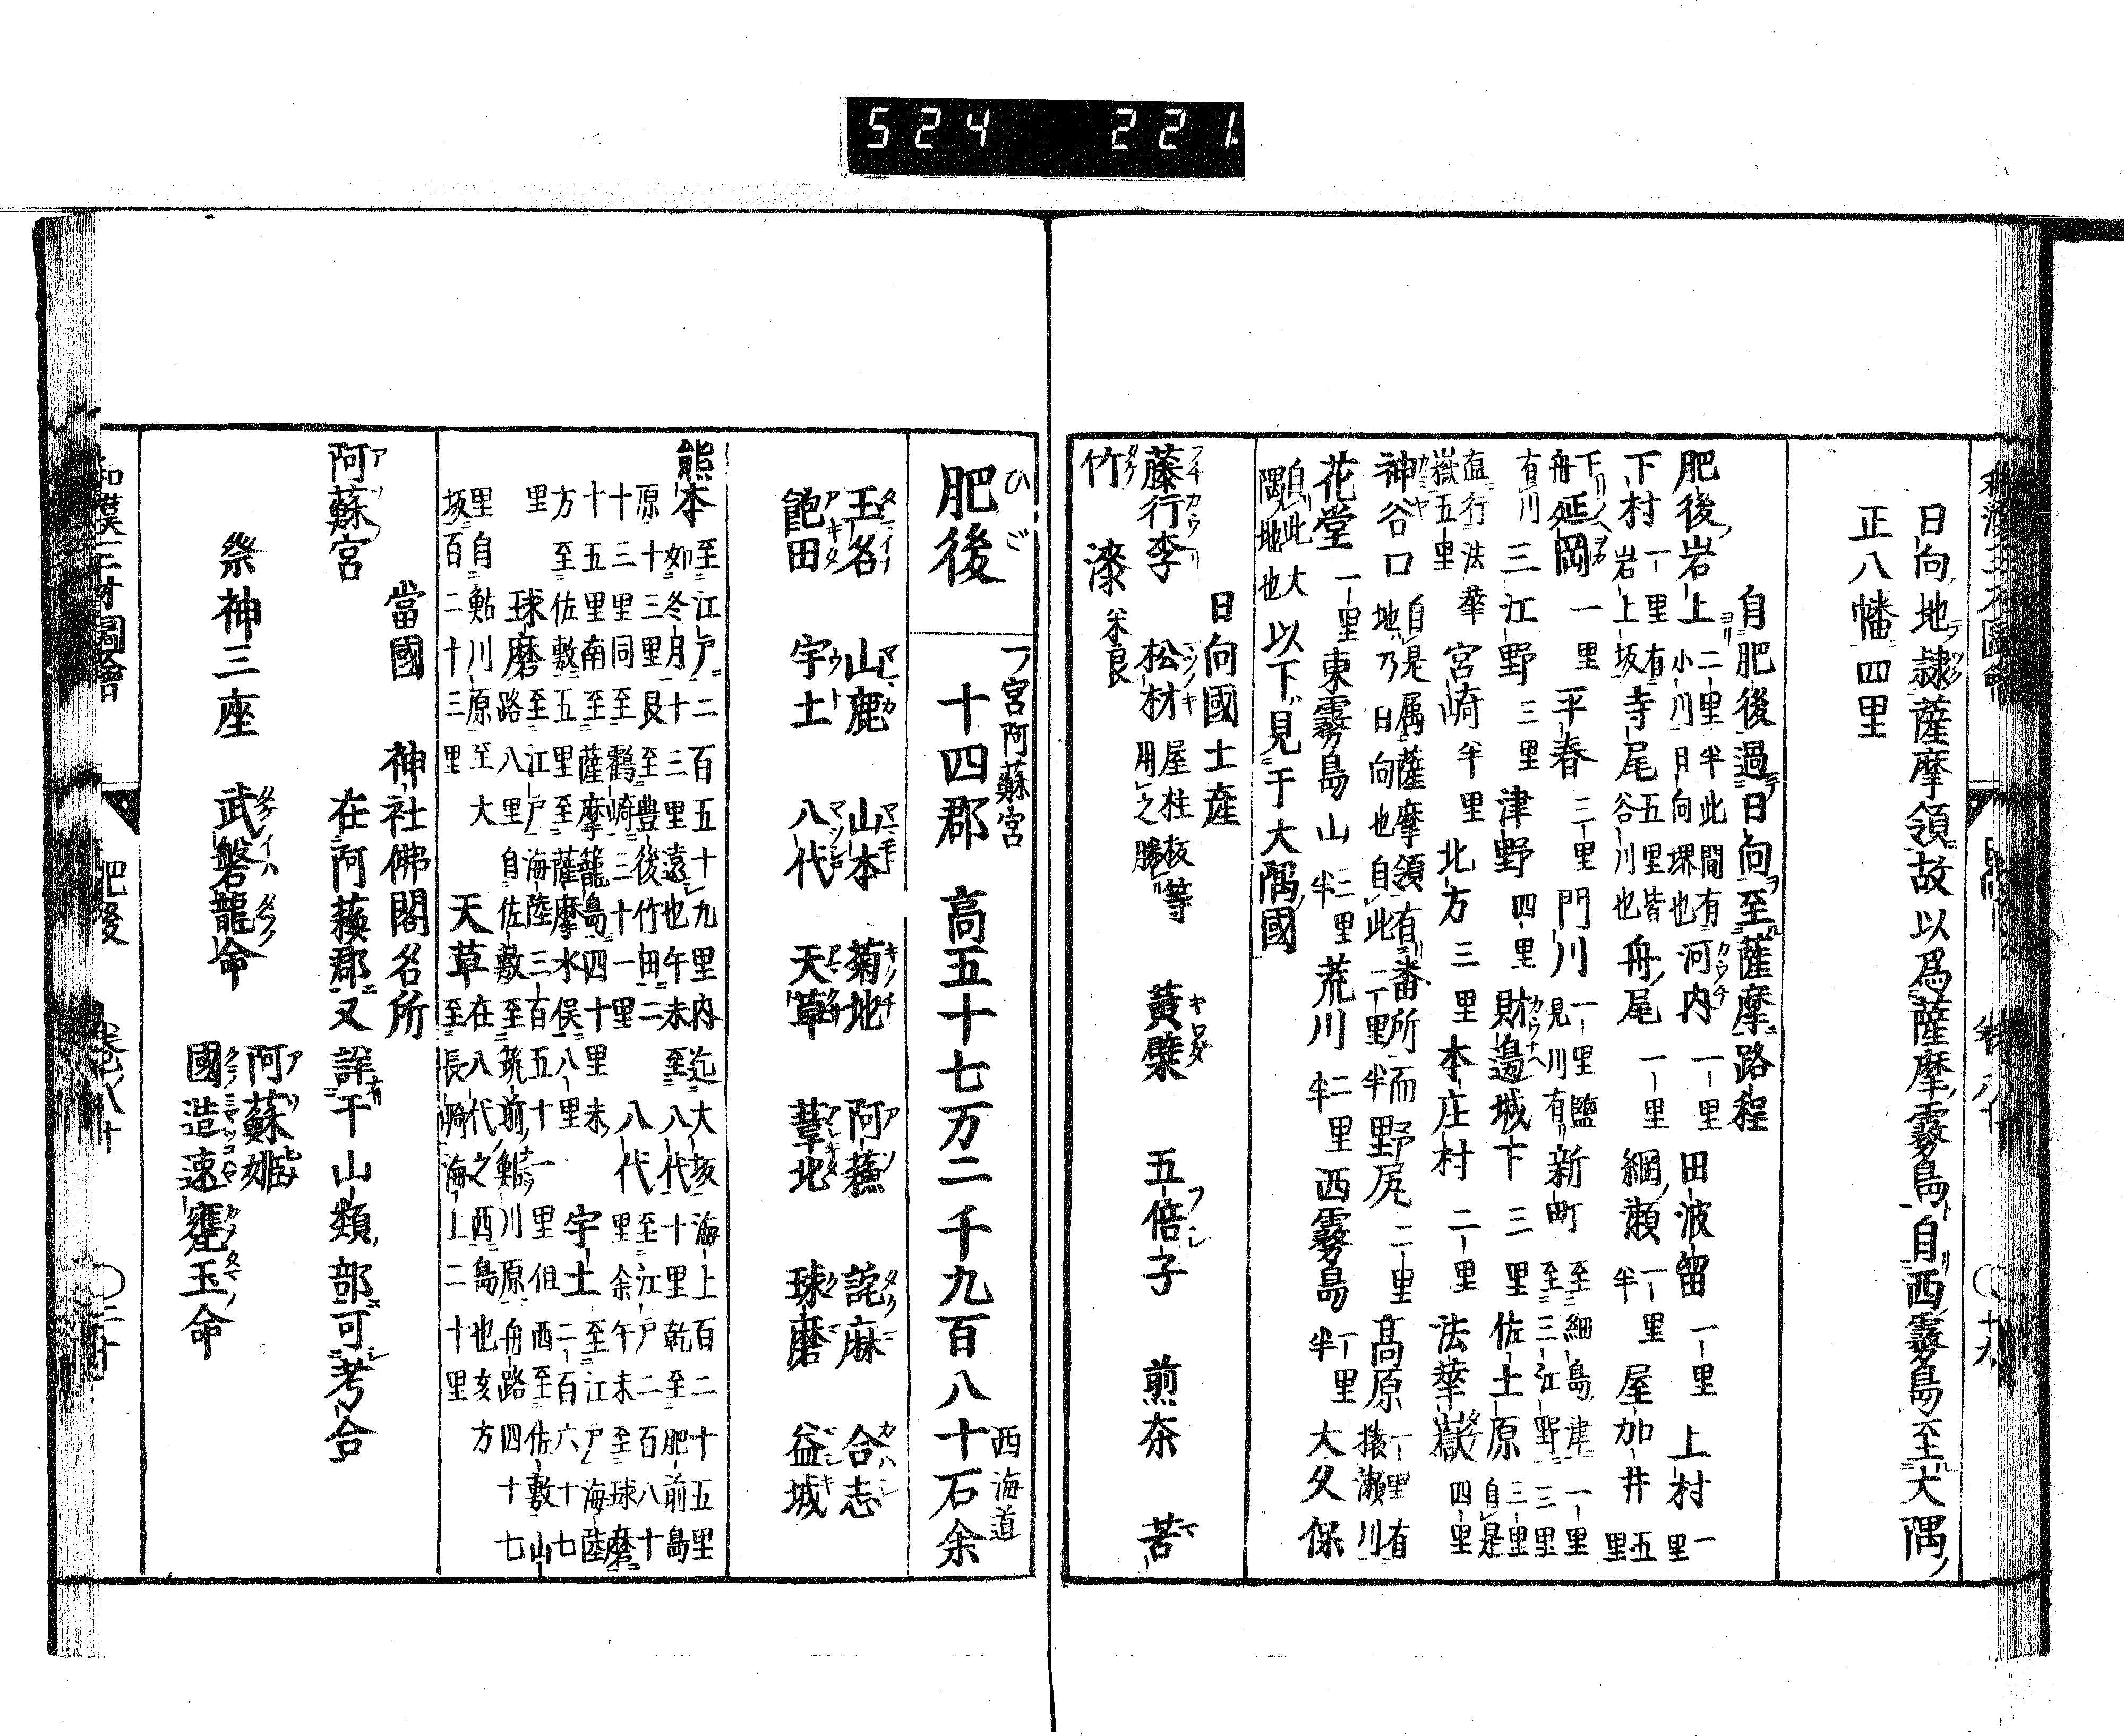 524 221
日向地隷薩摩領故以爲薩摩霧島自西霧島至大隅
正八幡四里
自肥後過日向至薩摩路程
肥後岩上 二里半此間有小川日向堺也 河内 一里 田波留 一里 上村 一里
下村 一里有岩上坂 寺尾 五里皆谷川也 舟尾 一里 綱瀬 一里半 屋加井 五里
下舟 延岡 一里 平春 三里 門川 一里鹽見川有 新町 至細島津一里至三江野三里
有川 三江野 三里 津野 四里 財邉城下 三里 佐土原 三里自是
直行法華嶽五里 宮崎 半里 北方 三里 本庄村 二里 法華嶽 四里
神谷口 自是属薩摩領有番所而地乃日向也自此二里半 野尻 二里 髙原 一里有猿瀬川
花堂 一里 東霧島山 三里半 荒川 二里半 西霧島 一里半 大久保
自此大隅地也 以下見于大隅國
日向國土産
藤行李 松材 屋柱板等用之勝 黃檗 五倍子 煎茶 苦
竹 漆 米良
肥後 ひご
一宮阿蘇宮 西海道
十四郡 高五十七万二千九百八十石余
玉名 山鹿 山本 菊地 阿蘇 詫麻 合志
飽田 宇土 八代 天草 葦北 球磨 益城
熊本 至江戸二百五十九里内迄大坂海上百二十五里
如冬月十三里遠也午未至八代十里乾至肥前島
原十三里艮至豊後竹田二 八代 至江戸二百八十
十三里同至鸖崎三十一里 里余午未至球磨
十五里南至薩摩籠島四十里未 宇土 至江戸海陸
方至佐敷五里至薩摩水俣八里 二百六十七
里 球磨 至江戸海陸三百五十一里但西至佐敷山
路八里自佐敷至筑前鮎川原舟路四十七
里自鮎川原至大 天草 在八代之西島也亥方
坂百二十三里 至長崎海上二十里
當國 神社佛閣名所
阿蘇宮 在阿蘓郡又詳于山類部可考合
祭神三座 武磐龍命 阿蘇姫
國造速甕玉命
和漢三才圖會 肥後 卷八十 〇二十